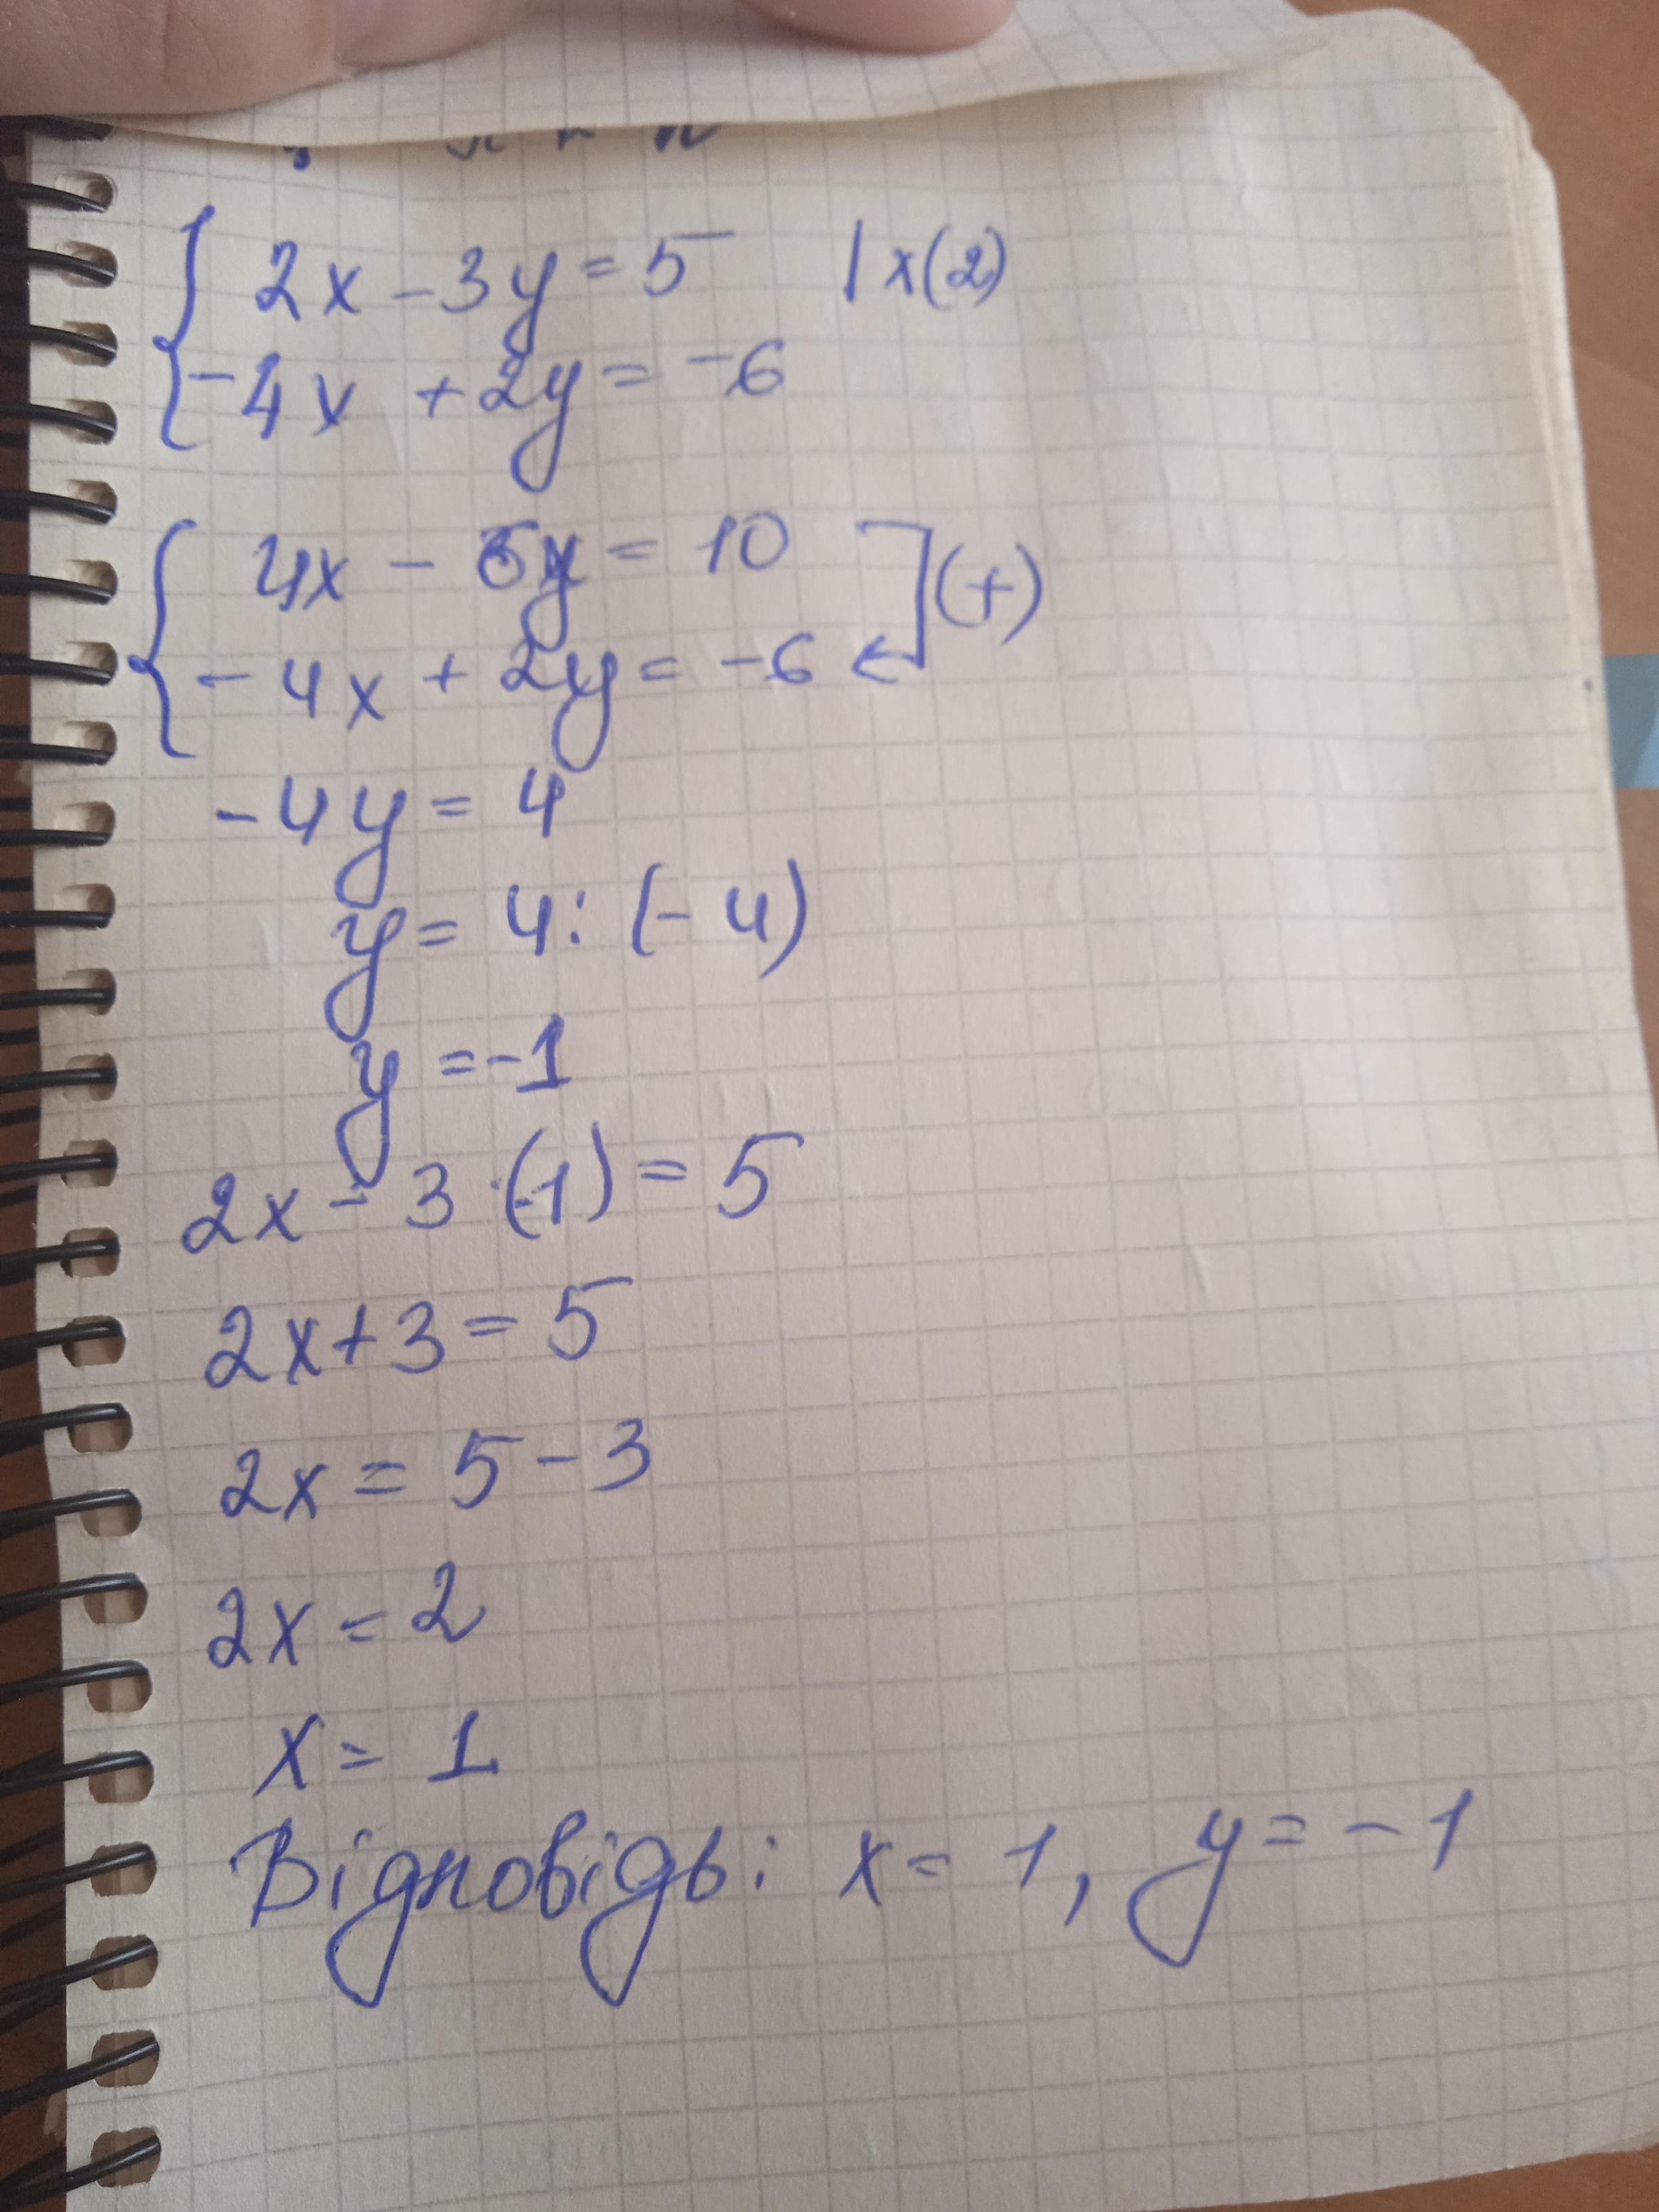 2x - 3y = 5 | x(2)
-4x + 2y = -6
4x - 6y = 10
-4x + 2y = -6 (+)
-4y = 4
y = 4 : (-4)
y = -1
2x - 3 · (-1) = 5
2x + 3 = 5
2x = 5 - 3
2x = 2
x = 1
Відповідь: x = 1, y = -1